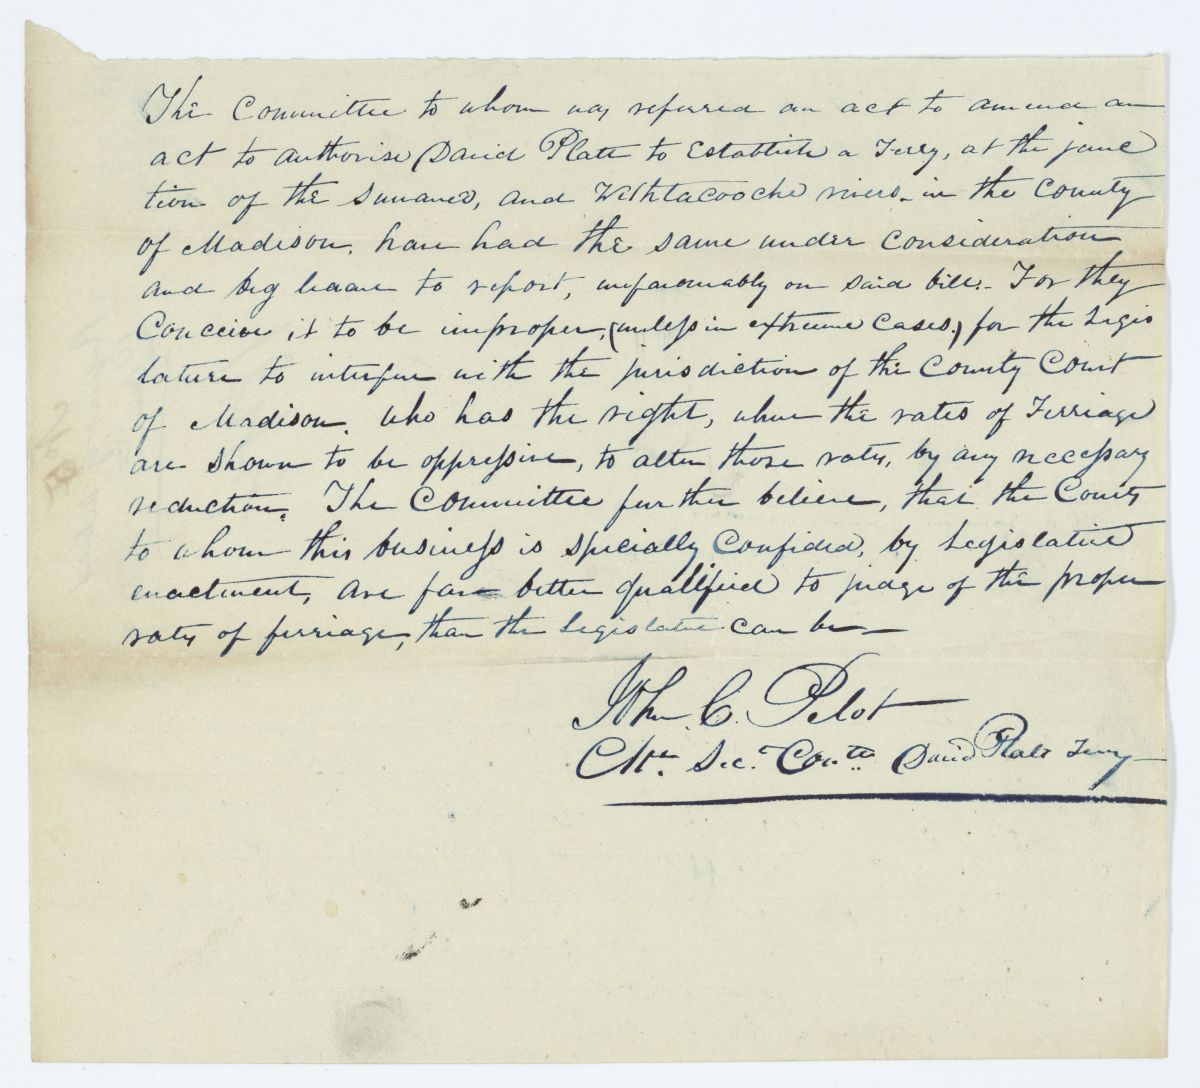 The Committee to whom was referred an act to amend an
act to authorise David Platt to Establish a Ferry, at the junc
tion of the Suwanee, and Withlacooche rivers. in the County
of Madison. have had the same under Consideration
and beg leave to report, unfavourably on said bill.- For they
Conceive it to be improper, (unless in extreme Cases.) for the Legis
lature to interfere with the jurisdiction of the County Court
of Madison. who has the right, when the rates of Ferriage
are shown to be oppressive, to alter those rates, by any necessary
reduction. The Committee further believe, that the Court
to whom this business is specially Confided, by Legislative
enactment, are far better qualified to judge of the proper
rates of ferriage, than the Legislature can be—
John C. Pelot
Chr. Sec. Com.tee David Platt Ferry